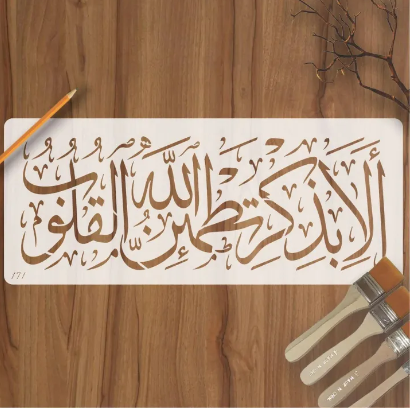 ألا بذكر الله تطمئن القلوب
171